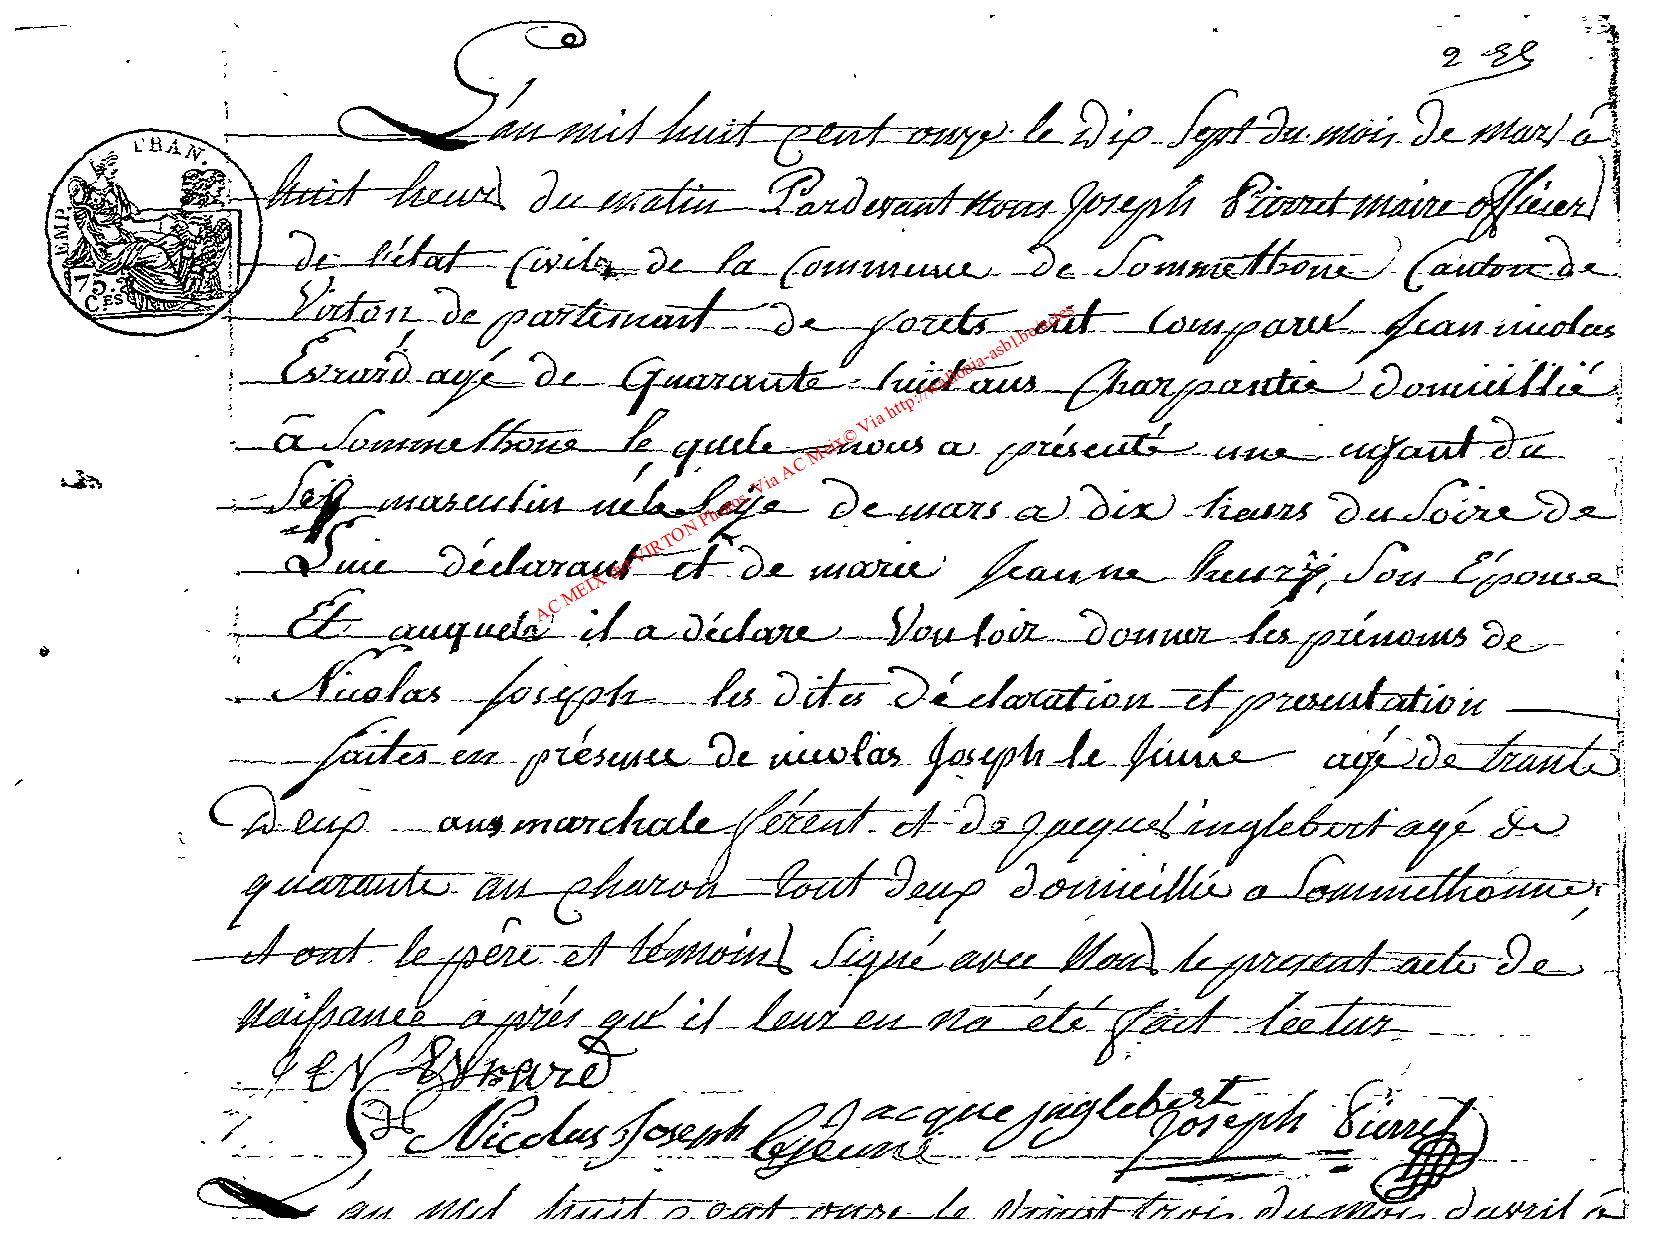 L'an mil huit cent onze le dix sept du mois de mars à
huit heurs du matin Pardevant nous Joseph Pierret maire officier
de l'état civile de la Commune de Sommethone Canton de
Virton de partemant de forets est comparu Jean nicolas
Evrard agé de Quarante huit ans Charpantie domicillié
a Sommethone le quele nous a présenté une enfant du
Sex masculin né le seize de mars a dix heurs du Soire de
Luie déclarant et de marie Jeanne henry, Son Épouse
Et auquele il a déclare Vouloir donner les prénoms de
Nicolas Joseph les dites déclaration et presentation
faites en présence de nicolas Joseph le Jeune agé de trante
deux ans marchale férent et de Jacques inglebert agé de
quarante an charon tout deux domicillie a Sommethonne
et ont le père et témoins Signé avec Nous le present acte de
Naissance après qu'il leur en na été fait lectur
EMP. FRAN.
75.
C.ES
J N Evrard
Jacque jnglebert
Nicolas Joseph lejeune
Joseph Pierret
L'an mil huit cent onze le Vingt trois du mois davril à
AC MEIX dt VIRTON Photos. Via AC Meix© Via http://wallonia-asbl.be/actes